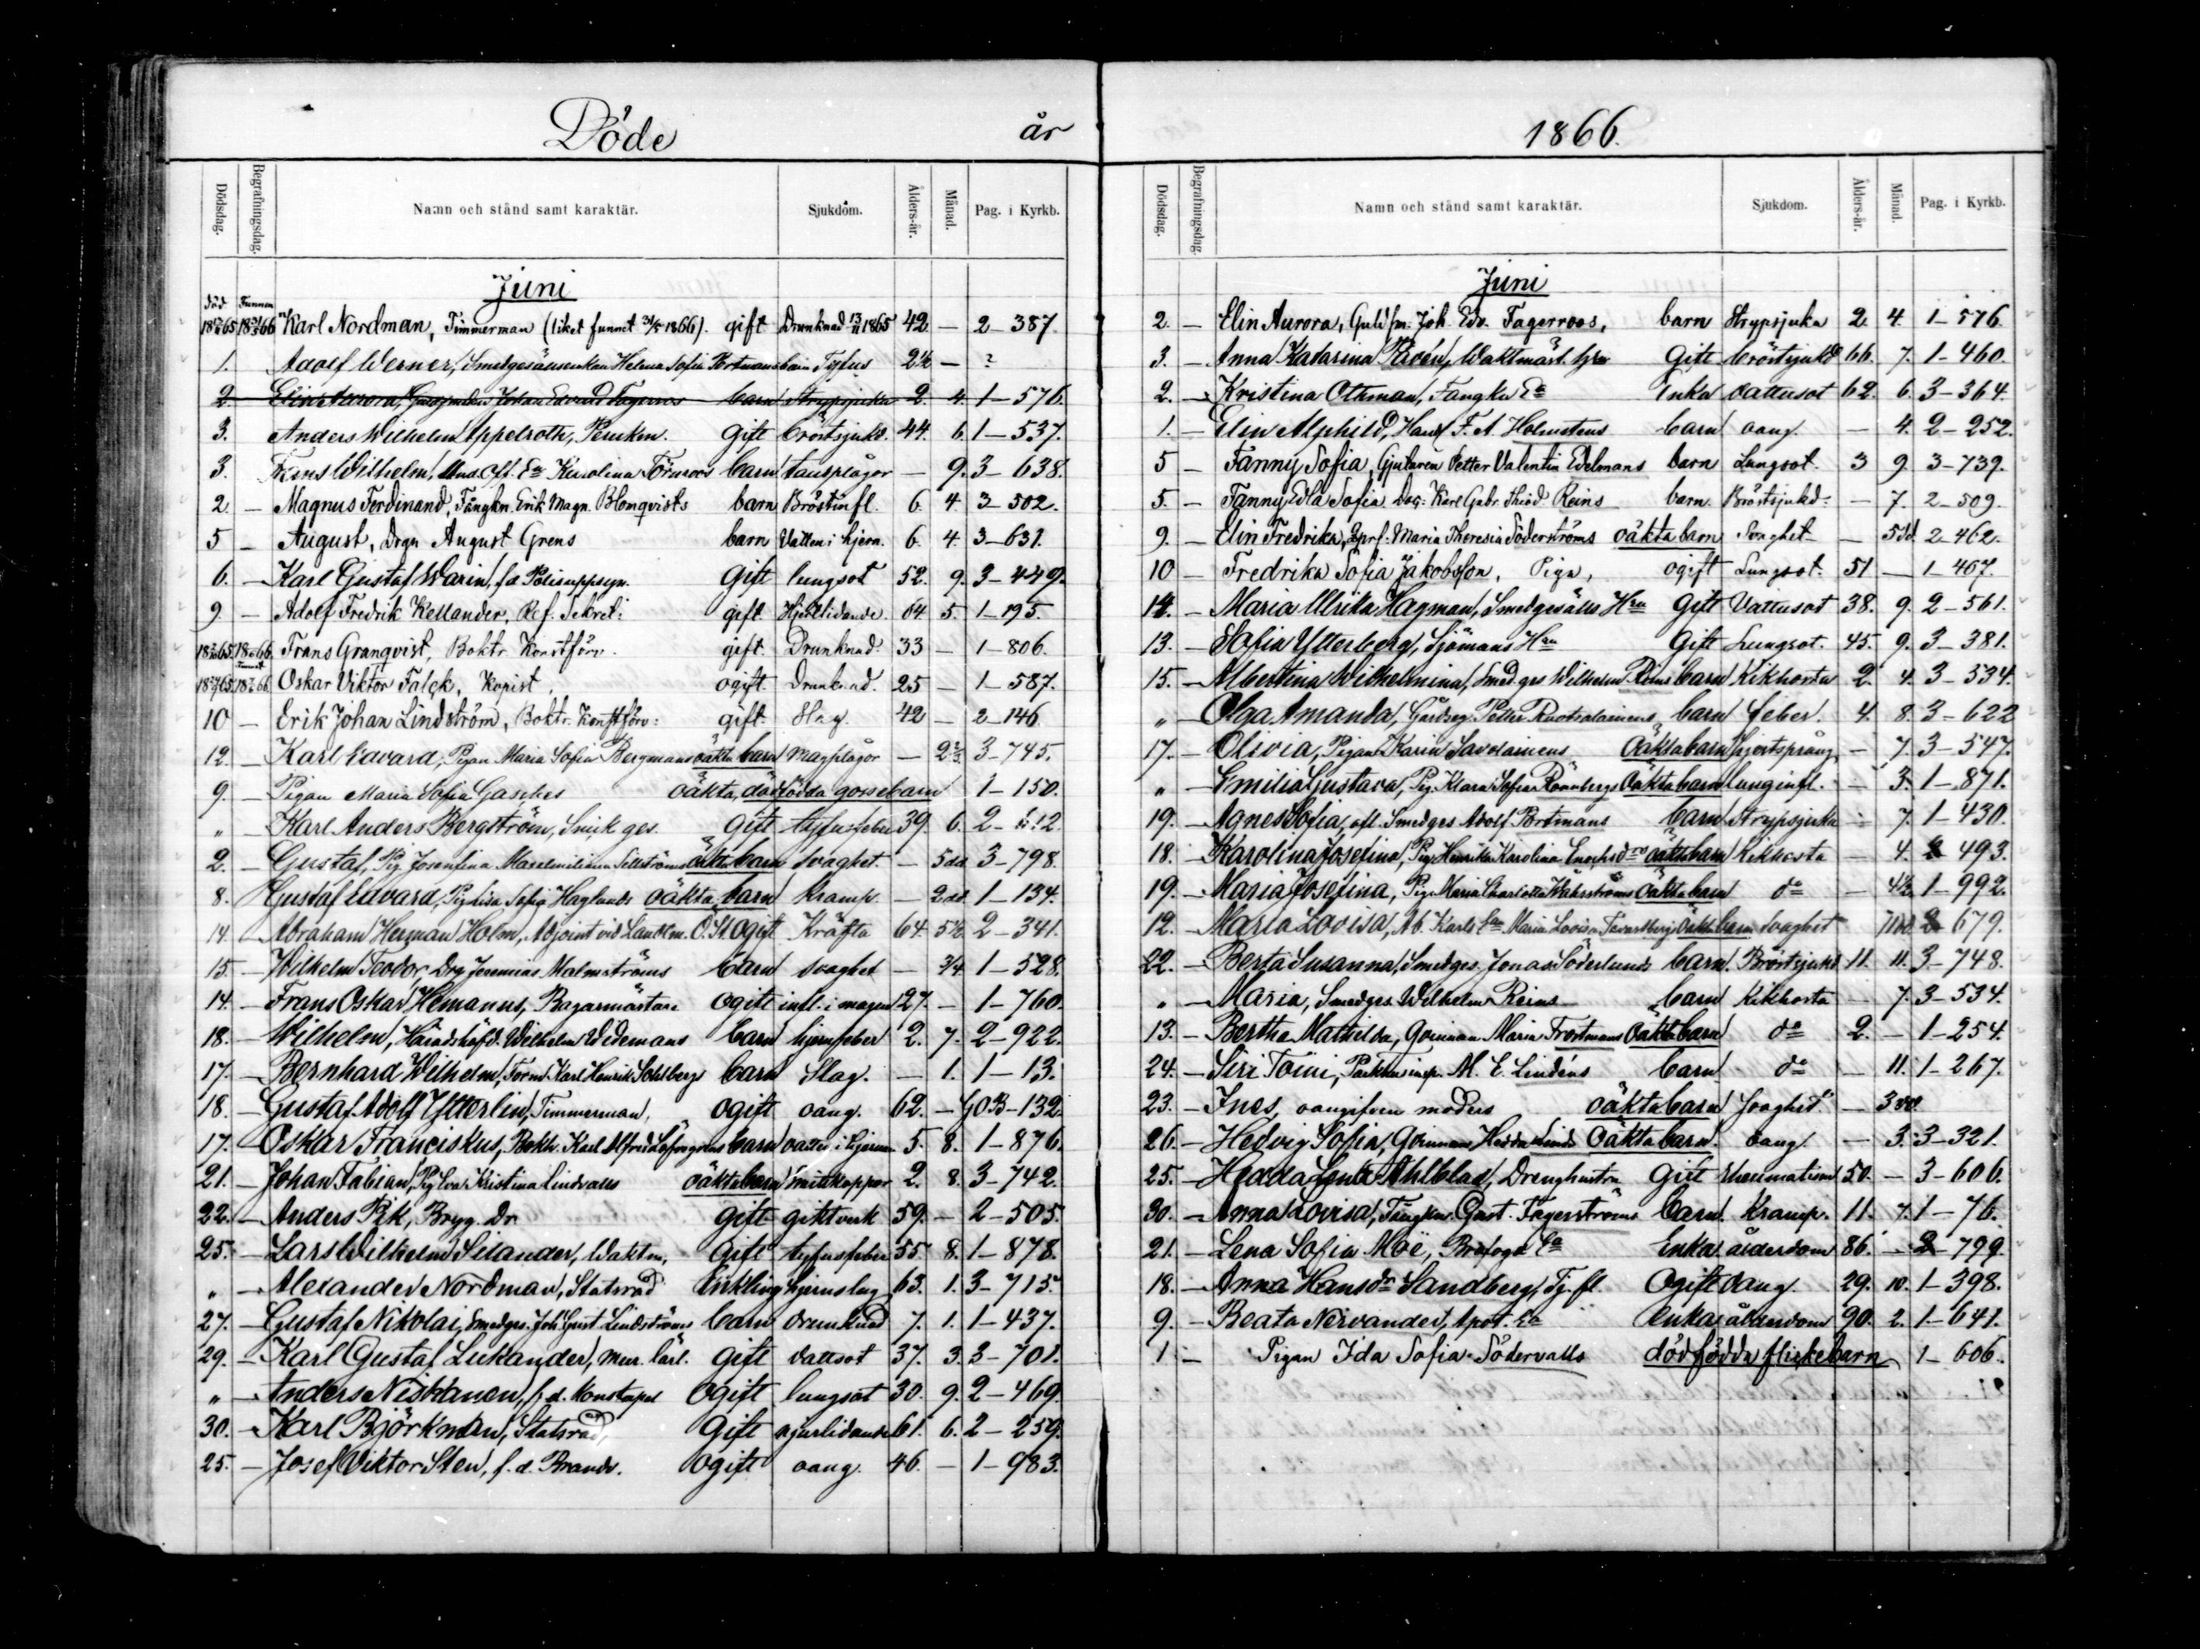 Döde år
Dödsdag. Begrafningsdag. Namn och stånd samt karaktär. Sjukdom. Ålders-år. Månad. Pag. i Kyrkb.
Juni
död Funnen
Karl Nordman, Timmerman (liket funnet 31/5 1866). gift Drunknad 13/11 1865 42 — 2—387.
1. Adolf Werner, Smedgesällsenkan Helena Sofia Portmans barn Tyfus 2½ — ?
2. Elin Aurora, Johan Edvard Fagerroos barn Strypsjuka 2. 4. 1—576.
3. Anders Wilhelm Appelroth, gift bröstsjukd. 44. 6. 1—537.
3. Frans Wilhelm, Und. Off. Ea Karolina Törnroos barn 9. 3—638.
2 — Magnus Ferdinand, Fångkn. Erik Magn. Blomqvists barn Bröstinfl. 6. 4 3—502.
5 — August, Drgn August Grens barn Vatten i hjern. 6. 4. 3—631.
6. — Karl Gustaf Warin, f.d. Polisuppsyn. gift lungsot 52. 9. 3—449.
9 — Adolf Fredrik Kellander, Ref. Sekret: gift. Hjertlidande. 64 5. 1—195.
Frans Granqvist, Boktr. Konstförv. gift. Drunknad 33 — 1—806.
Oskar Viktor Falck, Kopist, ogift. Drunknad. 25 — 1—587.
10 — Erik Johan Lindström, Boktr. Konstförv: gift Slag. 42 — 2—146
12. — Karl Edvard, Pigan Maria Sofia Bergmans oäkta barn magplågor — 2 2/3. 3—745.
9. — Pigan Maria Sofia Gasches oäkta, dödfödda gossebarn 1—150.
„ — Karl Anders Bergström, Snick. ges. gift tyfusfeber 39. 6. 2—612.
2. — Gustaf, Pig. Josefina Maximiliana Sillströms oäkta barn svaghet — 5 dd 3—798.
8. Gustaf Edvard, Pig. Lisa Sofia Haglunds oäkta barn Kramp. — 2 dd. 1—134.
14. — Abraham Herman Holm, Adjoint vid Landtm. Ö. St. ogift Kräfta 64. 5½ 2—341.
15. — Wilhelm Teodor Drg Jeremias Malmströms barn svaghet — 3/4. 1—528.
14. — Frans Oskar Hemanus, Bagarmästare ogift infl. i magen 27. — 1—760.
18. — Wilhelm, Häradshöfd. Wilhelm Widemans barn hjernfeber 2. 7. 2—922.
17. — Bernhard Wilhelm, Karl Henrik Sohlbergs barn Slag. — 1. 1—13.
18. — Gustaf Adolf Ytterlin, Timmerman, ogift oang. 62. — 132.
17. — Oskar Franciskus, Bokh. Karl Alfred barn vatten i hjernan 5. 8. 1—876.
21. — Johan Fabian, Pig Eva Kristina Lindvalls oäkta barn smittkoppor 2. 8. 3—742.
22. — Anders Pik, Bryg. Dr. gift giktverk 59. — 2—505.
25. — Lars Wilhelm Silander, Waktm. gift tyfusfeber 55 8. 1—878.
„ — Alexander Nordman, Statsråd Enkling hjernslag 63. 1. 3—715.
27. — Gustaf Nikolai, Smedges. Joh. Gust. Lindströms barn drunknad 7. 1. 1—437.
29. — Karl Gustaf Lukander, Mur. lärl. gift vattsot 37. 3. 3—701.
„ — Anders Niskanen, f.d. Konstapel ogift lungsot 30. 9. 2—469.
30. — Karl Björkman, Statsråd, gift njurlidande 61. 6. 2—259.
25. — Josef Viktor Sten, f.d. Brandv. ogift oang. 46. — 1—983.
1866.
Dödsdag. Begrafningsdag. Namn och stånd samt karaktär. Sjukdom. Ålders-år. Månad. Pag. i Kyrkb.
Juni
2. — Elin Aurora, Joh. Edv. Fagerroos, barn Strypsjuka 2. 4. 1—576.
3. — Anna Katarina Waktmäst. hru Gift bröstsjukd 66. 7. 1—460.
2. — Kristina Othman, Fångkn Ea Enka vattusot 62. 6. 3—364.
1. — Elin Alphild, Handl. F. A. Holmstens barn oang. — 4. 2—252.
5 — Fanny Sofia, Gjutaren Petter Valentin Edelmans barn Lungsot. 3 9 3—739.
5. — Fanny Edla Sofia Karl Gabr. Thiod. Reins barn. Bröstsjukd: — 7. 2—509.
9. — Elin Fredrika, Maria Theresia Söderströms oäkta barn Svaghet — 5 dd. 2—462.
10 — Fredrika Sofia Jakobsson, Piga, ogift Lungsot. 51 — 1—467.
14. — Maria Ulrika Hagman, Smedgesälls Hru Gift Vattusot 38. 9. 2—561.
13. — Sofia Ytterberg, Sjömans Hru Gift Lungsot. 45. 9. 3—381.
15. — Albertina Wilhelmina, Smed. ges Wilhelm Reins barn Kikhosta 2. 4. 3—534.
„ — Olga Amanda, Gårdseg. Petter Ruotsalainens barn feber. 4. 8. 3—622
17. — Olivia, Pigan Karin Savolainens Oäkta barn Hjertsprång — 7. 3—547.
„ — Emilia Gustava, Pig. Klara Sofia Rönnbergs Oäkta barn lunginfl. — 3. 1—871.
19. — Agnes Sofia, afl. Smedges Adolf Portmans barn Strypsjuka — 7. 1—430.
18. — Karolina Josefina, Pig. Henrika Karolina Enochsdrs oäkta barn Kikhosta — 4. 2 493.
19. — Maria Josefina, Pig. Maria Charlotta Wahrströms oäkta barn do — 4½ 1—992.
12. — Maria Lovisa, Ab. Karls Ea Maria Lovisa oäkta barn svaghet 2 679.
22. — Berta Susanna, Smedges. Jonas Söderlunds barn. Bröstsjukd. 11. 11. 3—748.
„ — Maria, Smedges Wilhelm Reins barn Kikhosta — 7. 3—534.
13. — Bertha Mathilda, Qvinnan Maria Trostmans Oäkta barn do 2. — 1—254.
24. — Siri Toini, Packhusinsp. M. E. Lindéns barn do — 11. 1—267.
23. — Ines, oangifven moders oäkta barn Svaghet — 3
26. — Hedvig Sofia, Qvinnans Hedda Linds Oäkta barn. oang. — 3. 3—321.
25. — Hedda Lena Ahlblad, Drenghustru Gift rheumatism 50. — 3—606.
30. — Anna Lovisa, Fångkn. Gust. Fagerströms barn Kramp. 11. 7. 1—76.
21. — Lena Sofia Moë, Brofogd Ea Enka ålderdom 86. — 2—799.
18. — Anna Hansdr Sandberg, Tj. fl. Ogift oang. 29. 10. 1—398.
9. — Beata Nervander, Apot. Ea Enka ålderdom 90. 2. 1—641.
1 — Pigan Ida Sofia Södervalls dödfödda flickebarn 1—606.